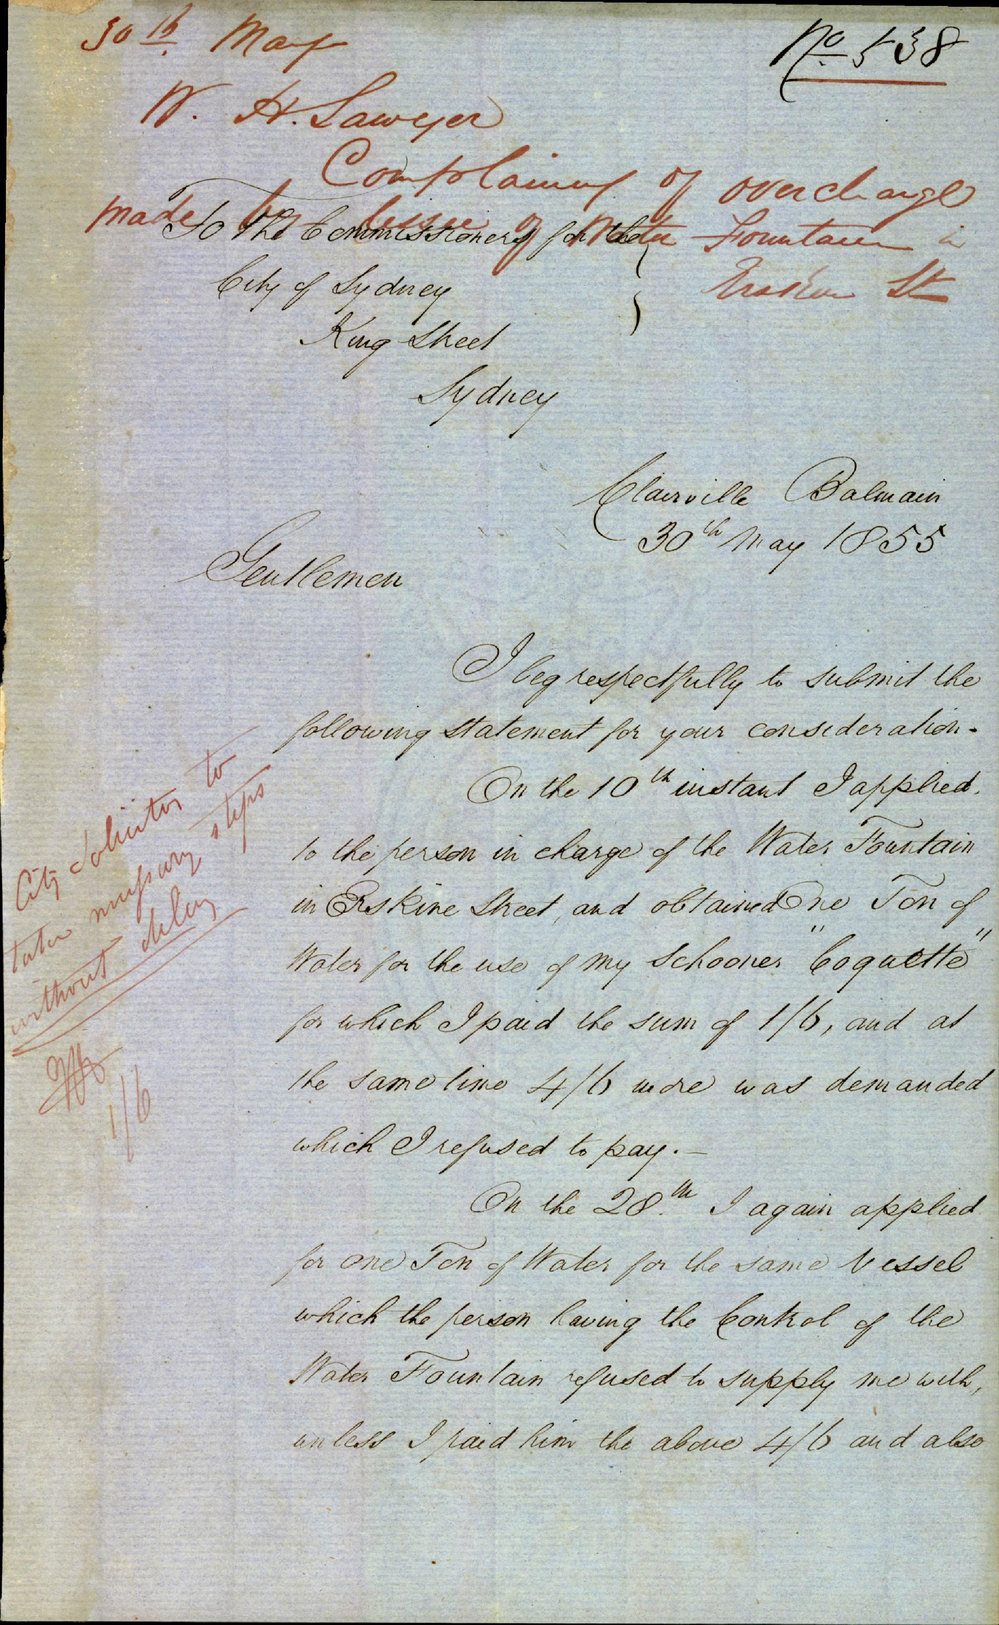 30th May
No. 538
W. H. Sawyer
Complaining of overcharge
made by lessee of Water Fountain in
Erskine St
To The Commissioners for the
City of Sydney
King Street
Sydney
Clairville Balmain
30th May 1855
Gentlemen
I beg respectfully to submit the
following statement for your consideration.
On the 10th instant I applied
to the person in charge of the Water Fountain
in Erskine Street, and obtained One Ton of
Water for the use of my Schooner "Coquette"
for which I paid the sum of 1/6, and at
the same time 4/6 more was demanded
which I refused to pay. —
On the 28th. I again applied
for one Ton of Water for the same Vessel
which the person having the Control of the
Water Fountain refused to supply me with,
unless I paid him the above 4/6 and also
City Solicitor to
take necessary steps
without delay
1/6